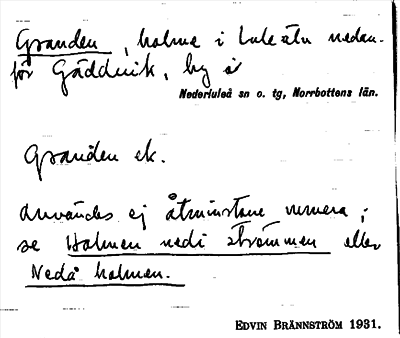 Granden, holme i Lule älv nedan-
för Gäddvik, by i
Nederluleå sn o. tg, Norrbottens län.
Granden ek.
Användes ej åtminstone numera;
se Holmen nedi strömmen eller
Nedå holmen.
EDVIN BRÄNNSTRÖM 1931.